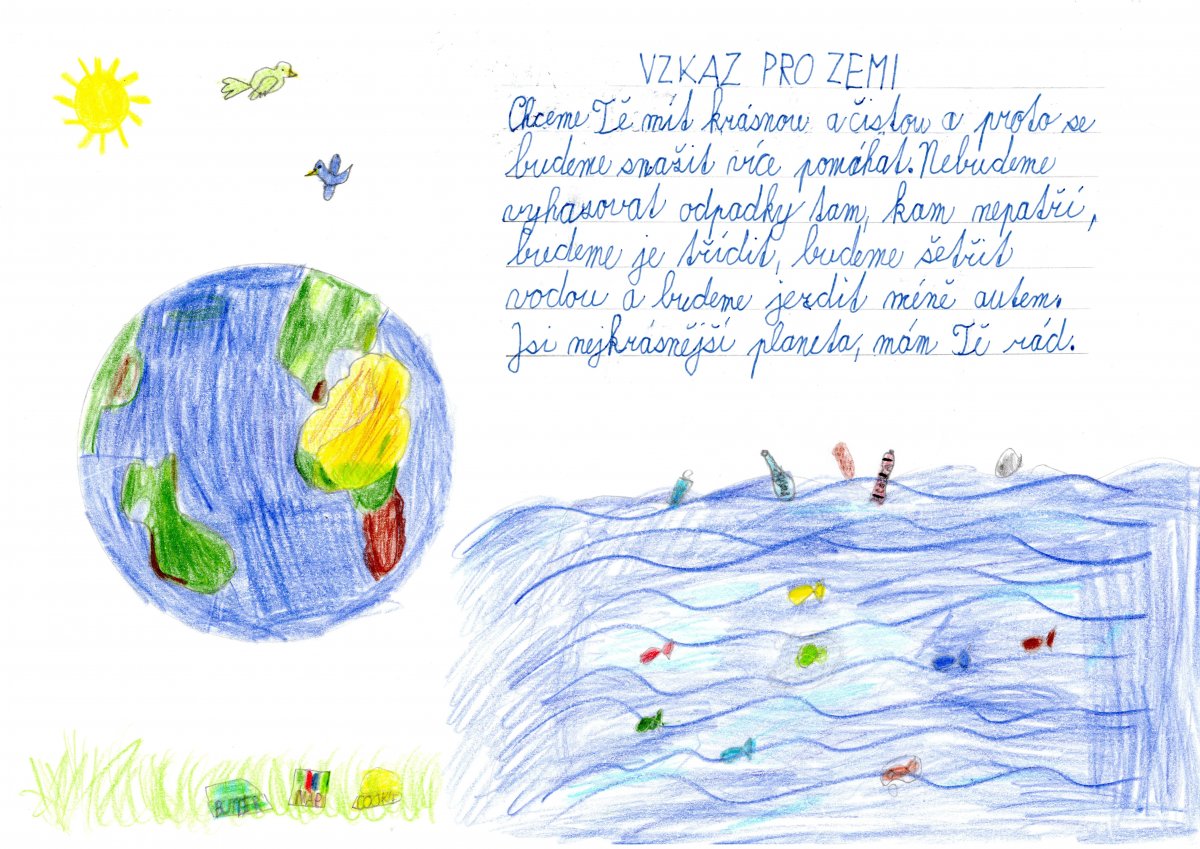 VZKAZ PRO ZEMI
Chceme Tě mít krásnou a čistou a proto se
budeme snažit více pomáhat. Nebudeme
vyhazovat odpadky tam, kam nepatří,
budeme je třídit, budeme šetřit
vodou a budeme jezdit méně autem.
Jsi nejkrásnější planeta, mám Tě rád.